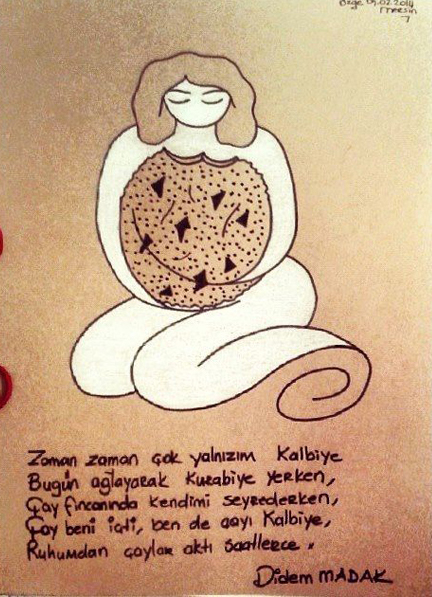 Özge 09.02.2014
mersin
7
Zaman zaman çok yalnızım Kalbiye
Bugün ağlayarak Kurabiye yerken,
Çay fincanında kendimi seyrederken,
Çay beni içti, ben de çayı Kalbiye,
Ruhumdan çaylar aktı saatlerce.
Didem MADAK